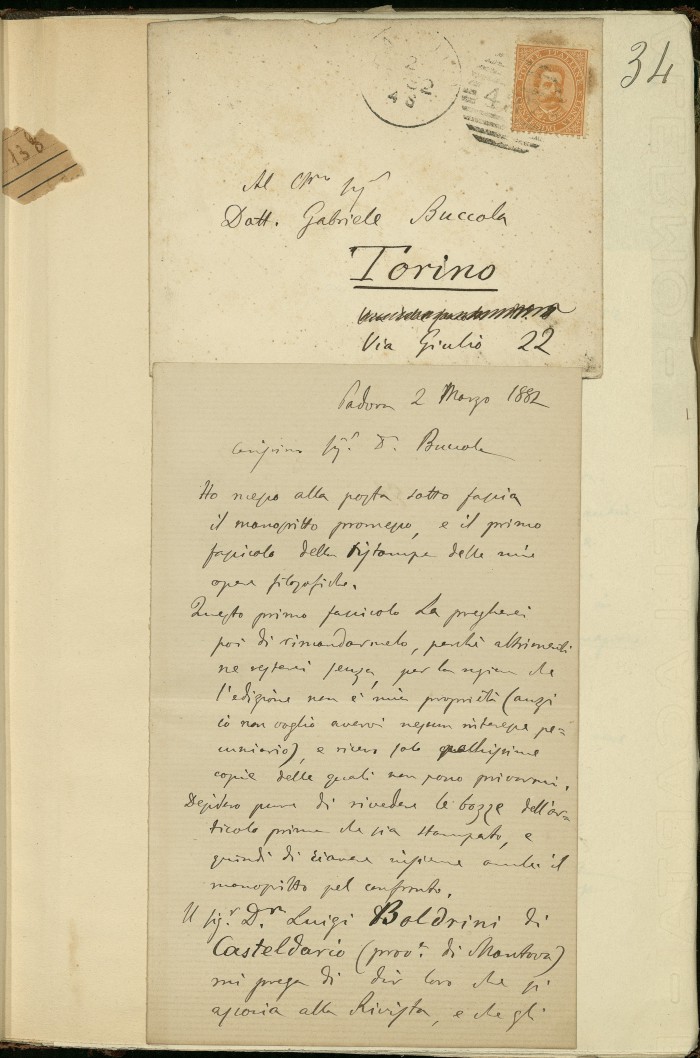 34
138
POSTE ITALIANE
2
4 82
Al Ch.mo Sig.r
Dott. Gabriele Buccola
Torino
Via Giulio 22
Padova 2 Marzo 1882
Carissimo Sig.r D.r Buccola
Ho messo alla posta sotto fascia
il manoscritto promesso, e il primo
fascicolo della ristampa delle mie
opere filosofiche.
Questo primo fascicolo La pregherei
poi di rimandarmelo, perchè altrimenti
ne resterei senza, per la ragione che
l'edizione non è mia proprietà (anzi
io non voglio avervi nessun interesse pe-
cuniario), e ricevo solo pochissime
copie delle quali non posso privarmi.
Desidero pure di rivedere le bozze dell'ar-
ticolo prima che sia stampato, e
quindi di riavere insieme anche il
manoscritto pel confronto.
Il sig.r D.r Luigi Boldrini di
Casteldario (prov.a di Mantova)
mi prega di dir loro che si
associa alla Rivista, e che gli